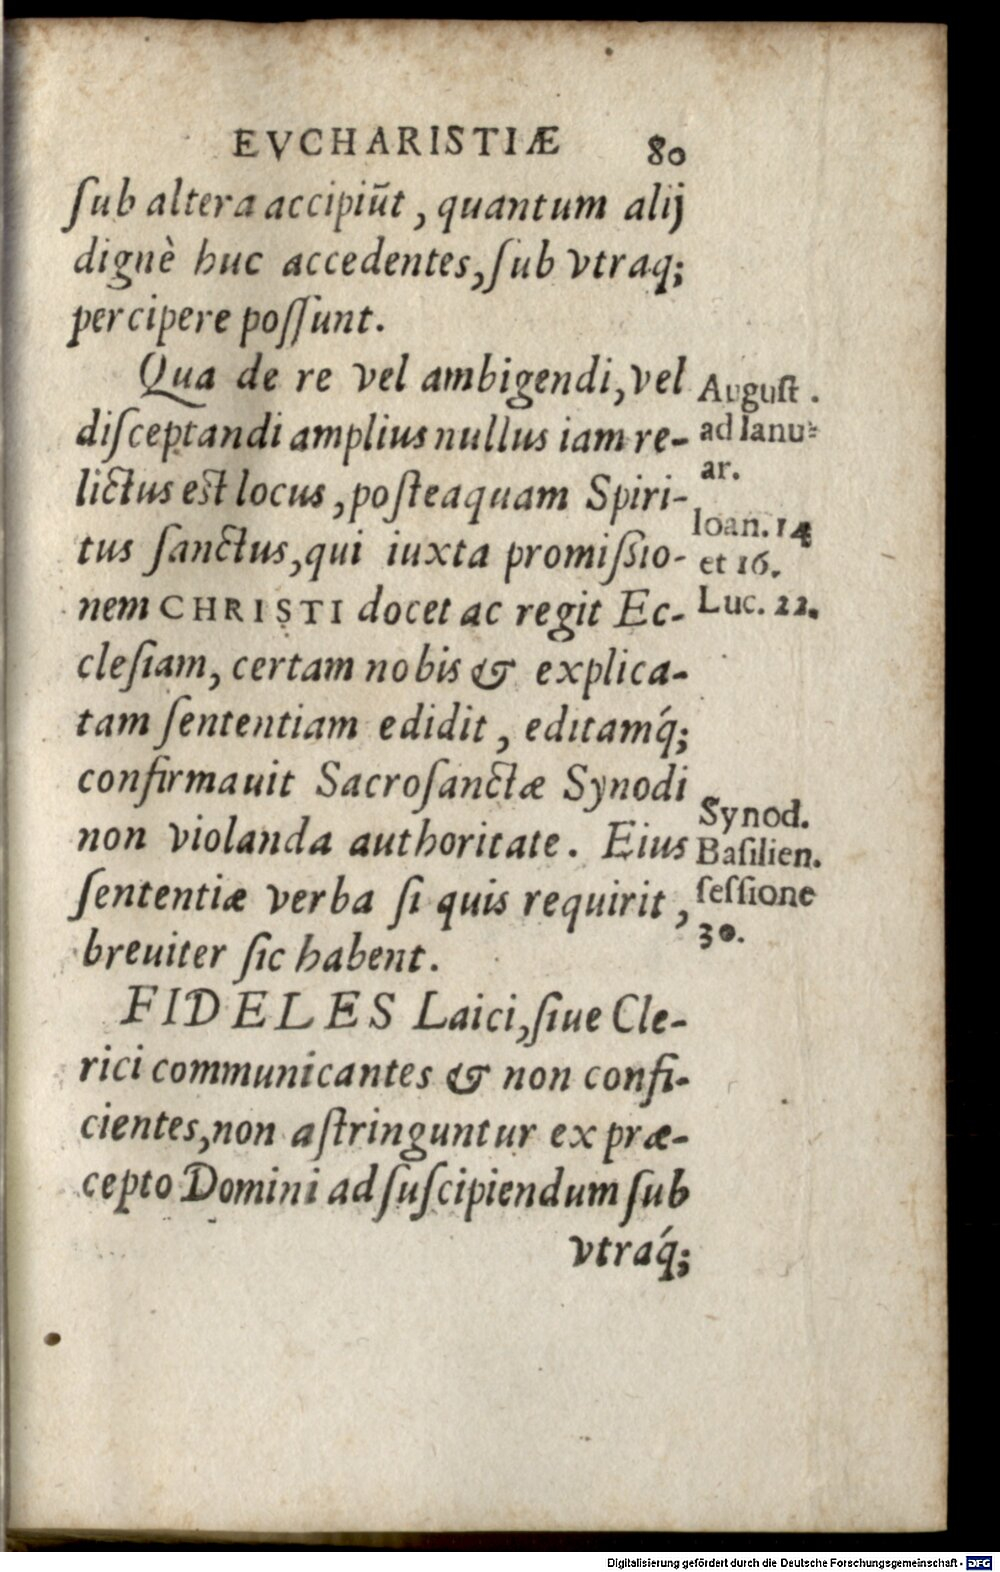 EVCHARISTIÆ 80
ſub altera accipiūt, quantum alij
dignè huc accedentes, ſub vtraq;
percipere poſſunt.
Qua de re vel ambigendi, vel
diſceptandi amplius nullus iam re-
lictus est locus, poſteaquam Spiri-
tus ſanctus, qui iuxta promiſsio-
nem CHRISTI docet ac regit Ec-
cleſiam, certam nobis & explica-
tam ſententiam edidit, editamq́;
confirmauit Sacroſanctæ Synodi
non violanda authoritate. Eius
ſententiæ verba ſi quis requirit,
breuiter ſic habent.
FIDELES Laici, ſiue Cle-
rici communicantes & non confi-
cientes, non aſtringuntur ex præ-
cepto Domini ad ſuſcipiendum ſub
vtraq́;
Auguſt.
ad Ianu-
ar.
Ioan. 14
et 16.
Luc. 22.
Synod.
Baſilien.
ſeſſione
30.
Digitalisierung gefördert durch die Deutsche Forschungsgemeinschaft - DFG